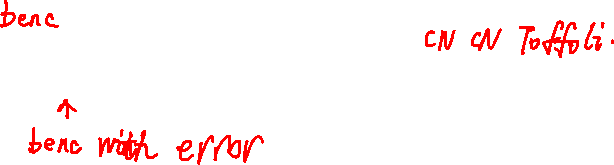 benc
CN CN Toffoli.
↑
benc with error